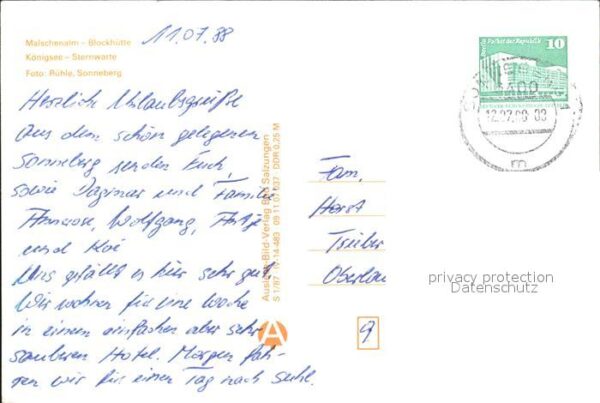 11.07.88
Malschenalm – Blockhütte
Königsee – Sternwarte
Foto: Rühle, Sonneberg
Herzlich Urlaubsgrüße
aus dem schön gelegenen
Sonneberg senden Euch,
sowie Dagmar und Familie
Annerose, Wolfgang, Antje
und Kai
Uns gefällt es hier sehr gut
Wir wohnen für eine Woche
in einem einfachen aber sehr
sauberen Hotel. Morgen fah-
ren wir für einen Tag nach Suhl.
Auslese-Bild-Verlag Bad Salzungen
S 1/87 14-483 09 11 07 037 DDR 0,25 M
A
Berlin, Palast der Republik
10
6400
12.07.88-08
m
Fam.
Horst
Trieber
Oberlau
9
privacy protection
Datenschutz